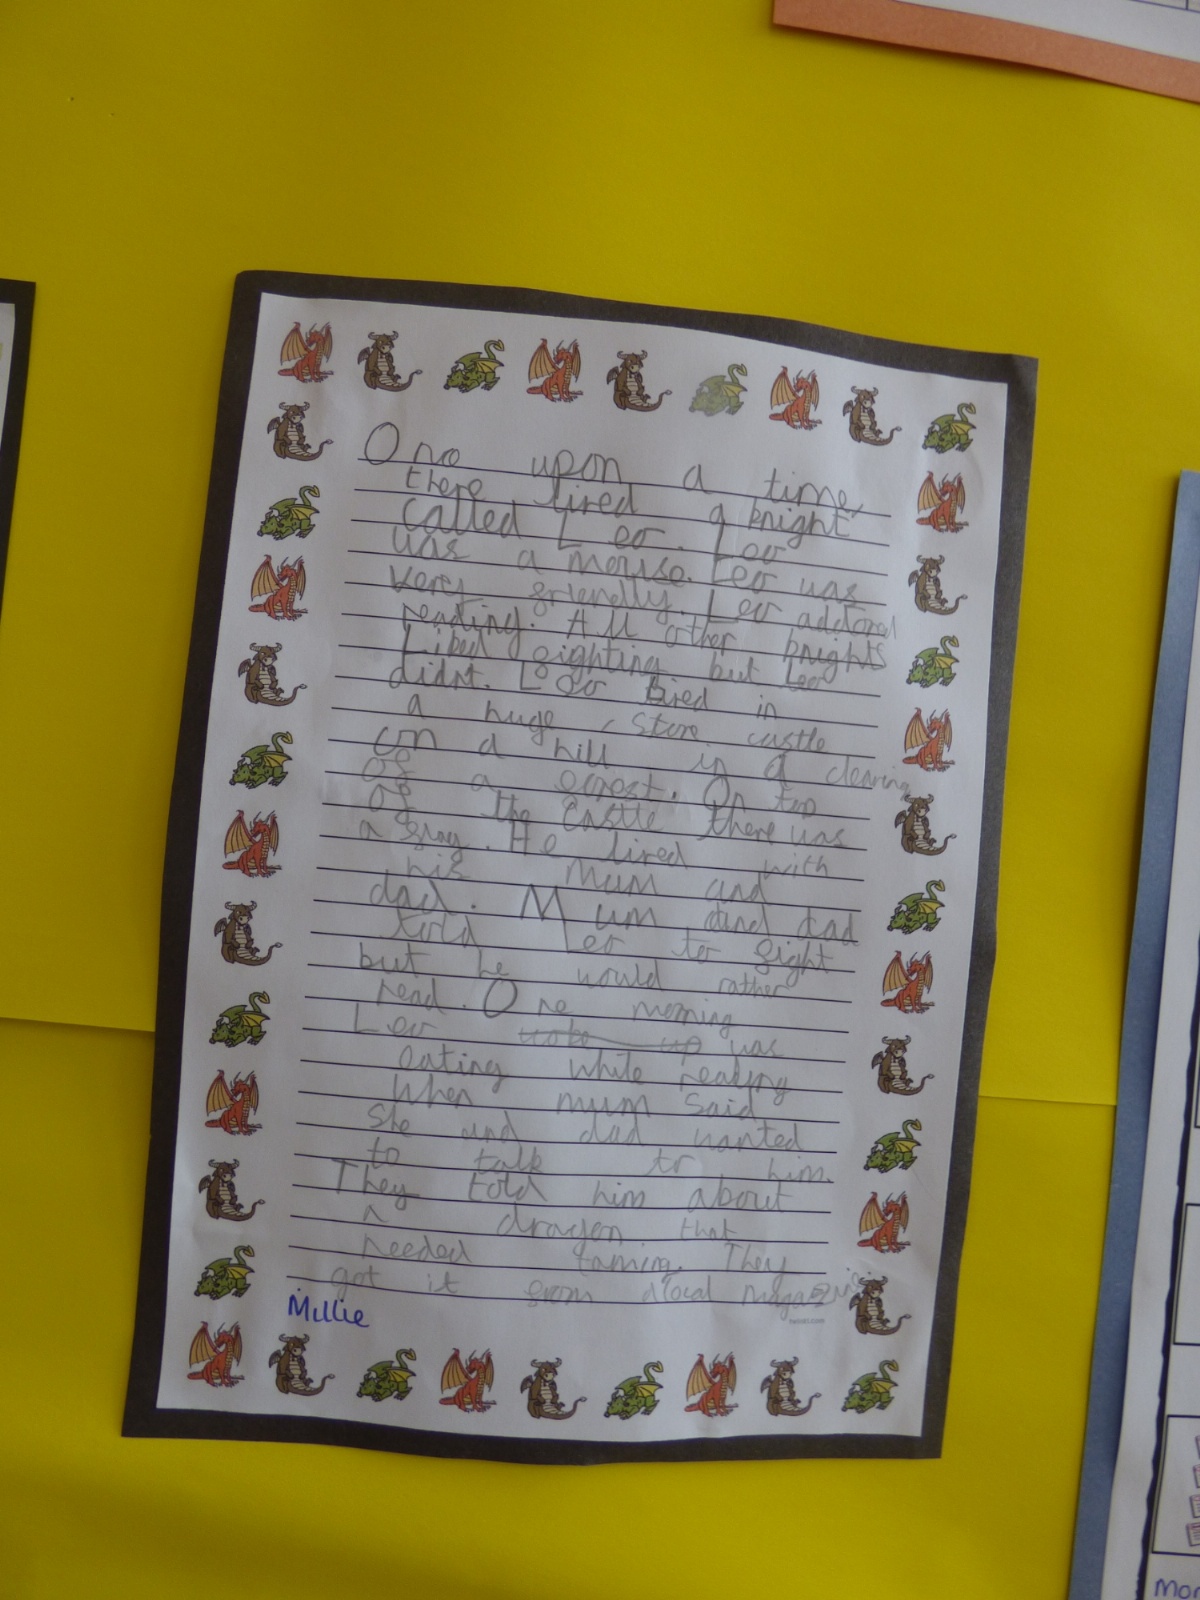 Onc upon a time,
there lived a knight
called Leo. Leo
was a mouse. Leo was
very friendly. Leo addored
reading. All other knights
Liked fighting but Leo
didnt. Leo lived in
a huge stone castle
on a hill in a clearing
of a forest. On top
of the castle there was
a flag. He lived with
his Mum and
dad. Mum and dad
told Leo to fight
but he would rather
read. One morning
Leo woke up was
eating while reading
when mum said
she and dad wanted
to talk to him.
They told him about
a dragon that
needed taming. They
got it from a local
Millie
twinkl.com
Mor